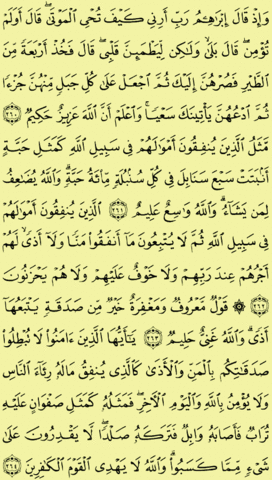 وَإِذْ قَالَ إِبْرَٰهِـۧمُ رَبِّ أَرِنِى كَيْفَ تُحْىِ ٱلْمَوْتَىٰ ۖ قَالَ أَوَلَمْ
تُؤْمِن ۖ قَالَ بَلَىٰ وَلَـٰكِن لِّيَطْمَئِنَّ قَلْبِى ۖ قَالَ فَخُذْ أَرْبَعَةً مِّنَ
ٱلطَّيْرِ فَصُرْهُنَّ إِلَيْكَ ثُمَّ ٱجْعَلْ عَلَىٰ كُلِّ جَبَلٍ مِّنْهُنَّ جُزْءًا
ثُمَّ ٱدْعُهُنَّ يَأْتِينَكَ سَعْيًا ۚ وَٱعْلَمْ أَنَّ ٱللَّهَ عَزِيزٌ حَكِيمٌ ﴿٢٦٠﴾
مَّثَلُ ٱلَّذِينَ يُنفِقُونَ أَمْوَٰلَهُمْ فِى سَبِيلِ ٱللَّهِ كَمَثَلِ حَبَّةٍ
أَنۢبَتَتْ سَبْعَ سَنَابِلَ فِى كُلِّ سُنۢبُلَةٍ مِّا۟ئَةُ حَبَّةٍ ۗ وَٱللَّهُ يُضَـٰعِفُ
لِمَن يَشَآءُ ۗ وَٱللَّهُ وَٰسِعٌ عَلِيمٌ ﴿٢٦١﴾ ٱلَّذِينَ يُنفِقُونَ أَمْوَٰلَهُمْ
فِى سَبِيلِ ٱللَّهِ ثُمَّ لَا يُتْبِعُونَ مَآ أَنفَقُوا۟ مَنًّا وَلَآ أَذًى ۙ لَّهُمْ
أَجْرُهُمْ عِندَ رَبِّهِمْ وَلَا خَوْفٌ عَلَيْهِمْ وَلَا هُمْ يَحْزَنُونَ
﴿٢٦٢﴾ ۞ قَوْلٌ مَّعْرُوفٌ وَمَغْفِرَةٌ خَيْرٌ مِّن صَدَقَةٍ يَتْبَعُهَآ
أَذًى ۗ وَٱللَّهُ غَنِىٌّ حَلِيمٌ ﴿٢٦٣﴾ يَـٰٓأَيُّهَا ٱلَّذِينَ ءَامَنُوا۟ لَا تُبْطِلُوا۟
صَدَقَـٰتِكُم بِٱلْمَنِّ وَٱلْأَذَىٰ كَٱلَّذِى يُنفِقُ مَالَهُۥ رِئَآءَ ٱلنَّاسِ
وَلَا يُؤْمِنُ بِٱللَّهِ وَٱلْيَوْمِ ٱلْـَٔاخِرِ ۖ فَمَثَلُهُۥ كَمَثَلِ صَفْوَانٍ عَلَيْهِ
تُرَابٌ فَأَصَابَهُۥ وَابِلٌ فَتَرَكَهُۥ صَلْدًا ۖ لَّا يَقْدِرُونَ عَلَىٰ
شَىْءٍ مِّمَّا كَسَبُوا۟ ۗ وَٱللَّهُ لَا يَهْدِى ٱلْقَوْمَ ٱلْكَـٰفِرِينَ ﴿٢٦٤﴾